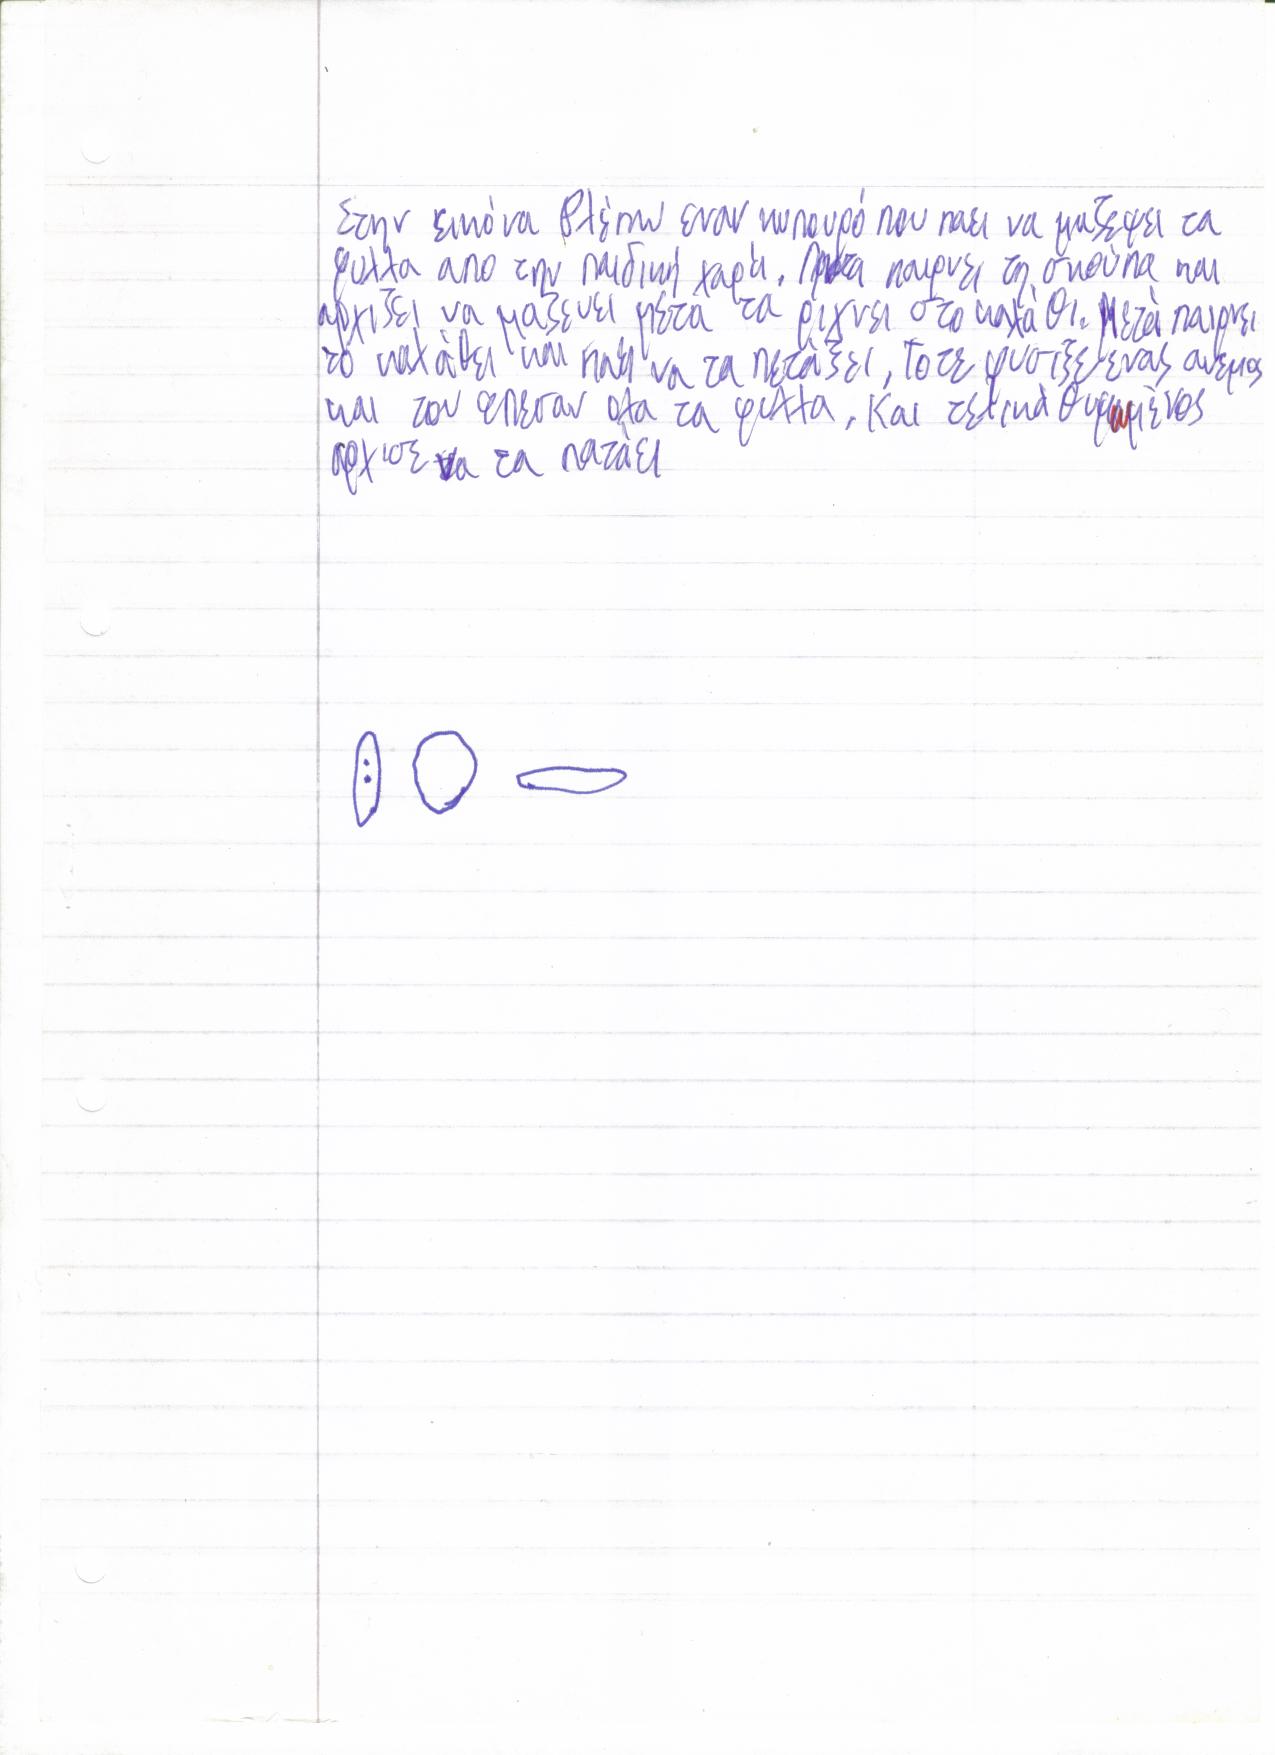 Στην εικόνα βλέπω εναν κυπουρό που παει να μαζεψει τα
φυλλα απο την παιδική χαρά. Πρώτα παιρνει τη σκούπα και
αρχιζει να μαζευει μετά τα ριχνει στο καλάθι. Μετά παιρνει
το καλάθει και παει να τα πετάξει, Τοτε φυσιξε ενας ανεμος
και του επεσαν ολα τα φυλλα. Και τελικά θυμωμένος
αρχισε να τα πατάει